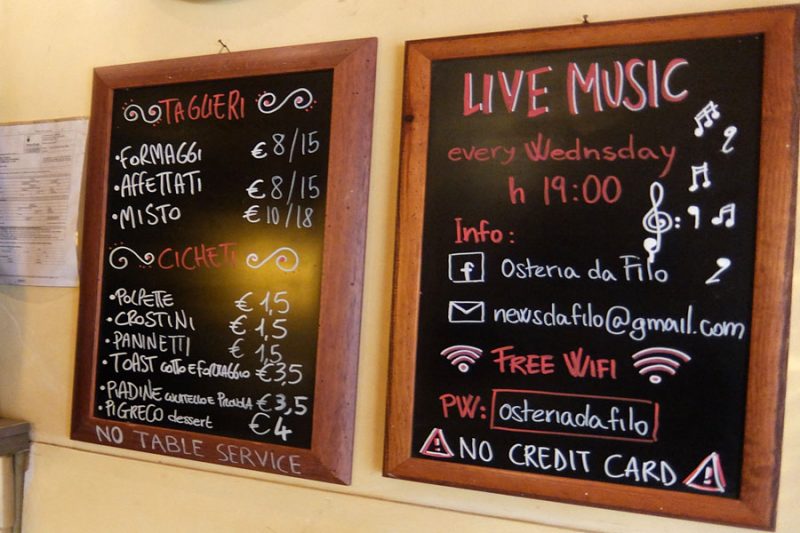 TAGLIERI
•FORMAGGI € 8/15
•AFFETTATI € 8/15
•MISTO € 10/18
CICHETI
•POLPETTE € 1,5
•CROSTINI € 1,5
•PANINETTI € 1,5
•TOAST COTTO E FORMAGGIO € 3,5
•PIADINE E € 3,5
•PI GRECO dessert € 4
NO TABLE SERVICE
LIVE MUSIC
every Wednsday
h 19:00
Info:
f Osteria da Filo
newsdafilo@gmail.com
FREE WIFI
PW: osteriadafilo
! NO CREDIT CARD !